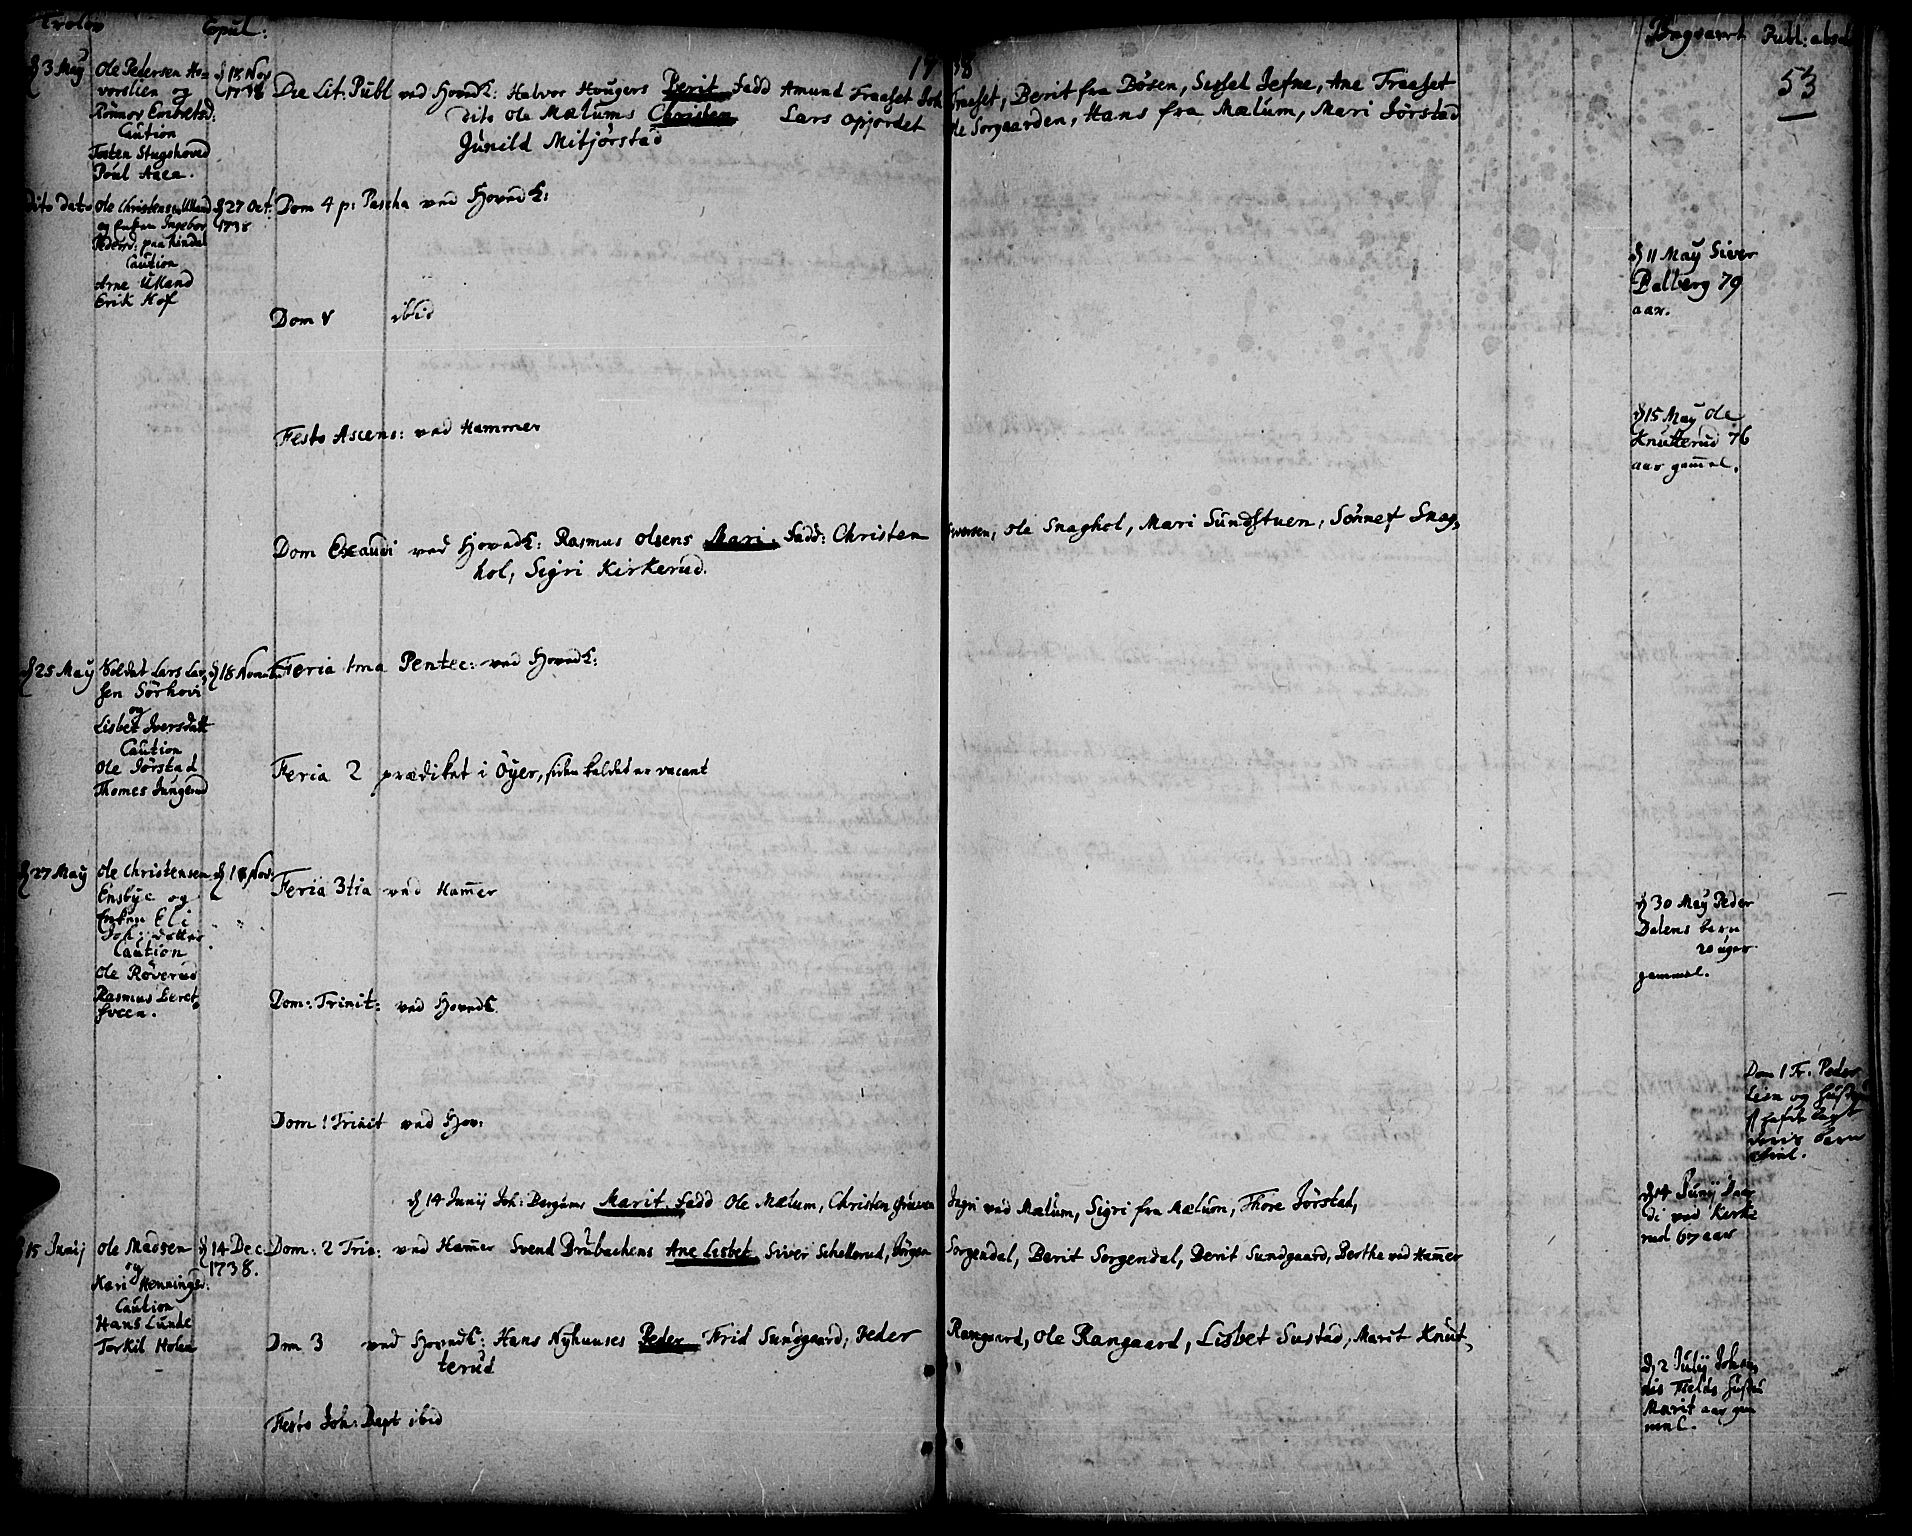 Trolov
Copul:
1738
Begravet Publ: absol
53
d 3 May
Ole Pedersen Ho=
vorslien og
Rönnov Enebretsd:
Caution
Tosten Stugshoved
Poul Aaen.
d 18 Nov
1738
Die Lit: Publ ved Hovedk: Halvor Hougers Berit Fadd Amund Fraaset Joh Fraaset, Berit fra Bösen, Sissel Jefne, Ane Fraaset
dito Ole Mælums Christen Lars opjordet Ole Sorgaarden, Hans fra Mælum, Mari Jörstad
Gunild Mitjörstad
dito dato
Ole Christensen Ulland
og Enken Ingebor
Pedersd: paa Rindal
Caution
Arne Ulland
Erik Hof
d 27 Oct.
1738
Dom 4 p: Pascha ved Hovedk:
d 11 May Siver
Balberg 79
aar.
Dom V ibid
Festo Ascens: ved Hammer
d 15 May Ole
Knutterud 76
aar gam̄el.
Dom Exaudi ved Hovedk: Rasmus Olsens Mari. Fadd: Christen Iversen, Ole Snaghol, Mari Sundstuen, Sönnef Snag,
hol, Sigri Kirkerud.
d 25 May
Soldat Lars Lar,
sen Sörhovi
og
Lisbet Iversdatt
Caution
Ole Jörstad
Thomes Jungerud
d 18 Nov
Feria 1ma Pentec: ved Hovedk:
Feria 2 prædiket i Öyer, siden kaldet er vacant
d 27 May
Ole Christensen
Ensbye og
Enken Eli
Joh: datter
Caution
Ole Röverud
Rasmus Leret,
sveen.
d 18 Nov:
Feria 3tia ved Ham̄er
d 30 May Peder
Dalens barn
20 uger
gammel.
Dom: Trinit: ved Hovedk
Dom 1 Trinit ved Hov:
Dom 1 Tr. Peder
Lien og Hustru
barn
d 14 Junij Joh: Bergums Marit. Fadd Ole Mælum, Christen Ingri ved Mælum, Sigri fra Mælum, Thore Jörstad,
d 14 Junij
di ved Kirke
rud 67 aar
15 Junij
Ole Madsen
og
Kari Hennings:
Caution
Hans Lunde
Torkil Holen
d 14 Dec
1738.
Dom: 2 Trin: ved Ham̄er Svend Brubachens Ane Lisbet Siver Schellerud, Jörgen Sorgendal, Berit Sorgendal, Berit Sundgaard, Berthe ved Ham̄er
Dom 3 ved Hovedk: Hans Nyhuuses Peder Frid Sundgaard, Peder Rangaard, Ole Rangaard, Lisbet Sustad, Marit Knut,
terud
d 2 Julij Johan,
nis Fields hustru
Marit aar gam
mel.
Festo Joh: Bapt ibid